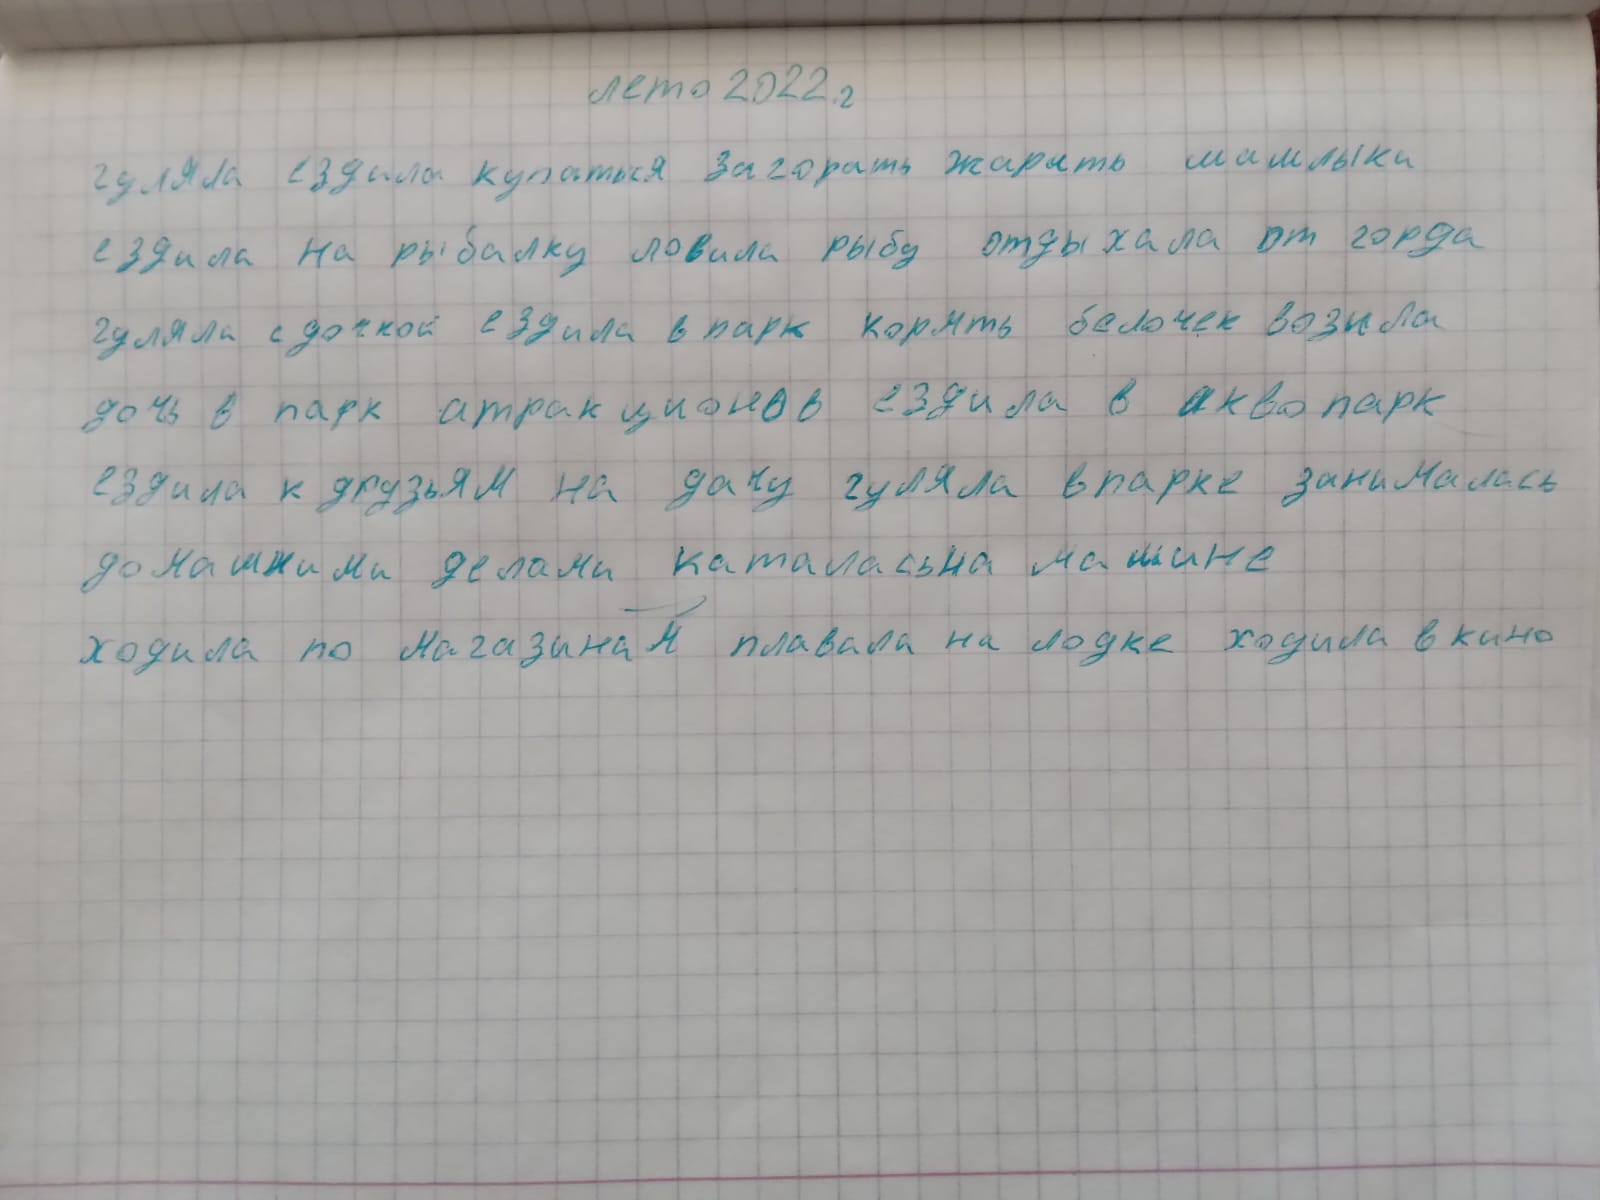 лето 2022.г
гуляла ездила купаться загорать жарить шашлыки
ездила на рыбалку ловила рыбу отдыхала от горда
гуляла с дочкой ездила в парк кормть белочек возила
дочь в парк атракционов ездила в аквопарк
ездила к друзьям на дачу гуляла в парке занималась
домашними делами каталась на машине
ходила по магазинам плавала на лодке ходила в кино